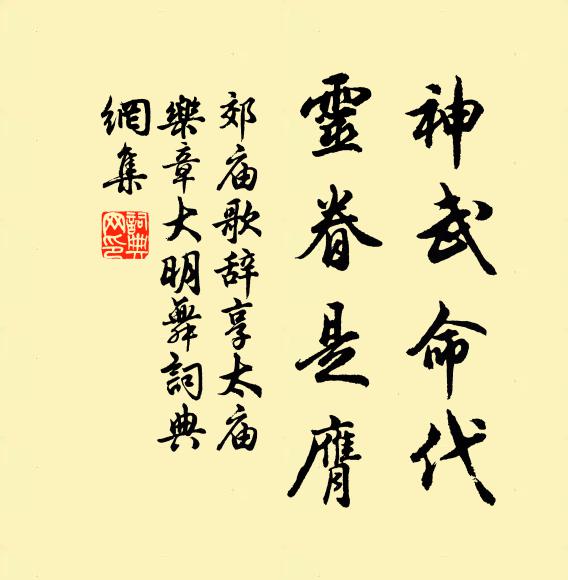 神武命代
靈眷是膺
郊庙歌辞享太庙
樂章大明舞詞典
網集
詞典
网印